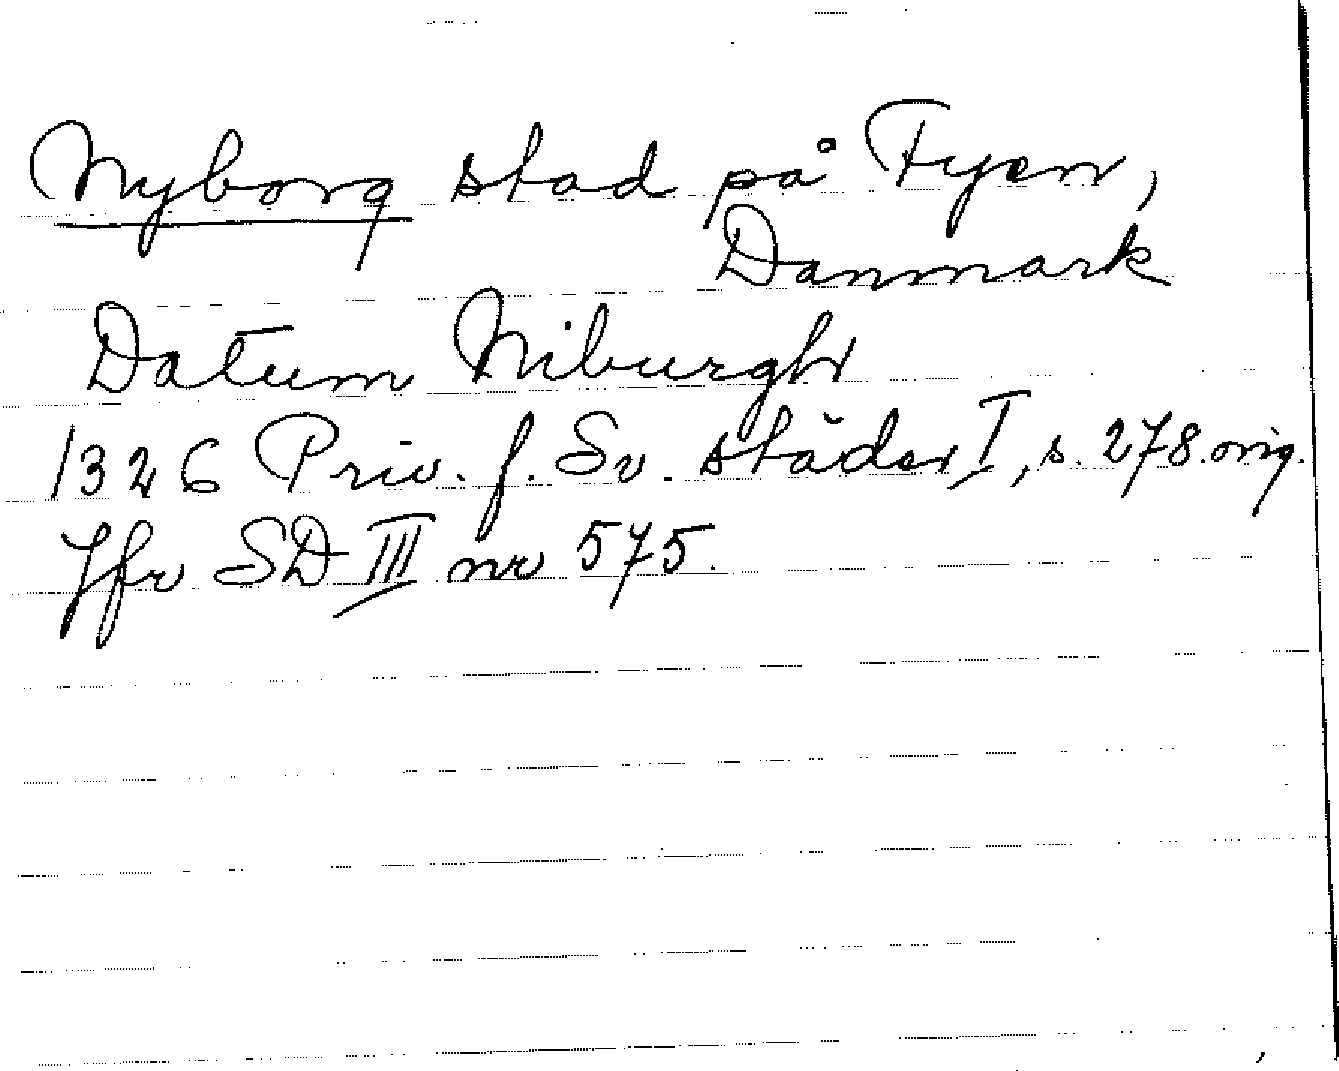 Nyborg stad på Fyen,
Danmark
Datum Niburgh
1326 Priv. f. Sv. städer I, s. 278. orig.
Jfr SD III nr 575.